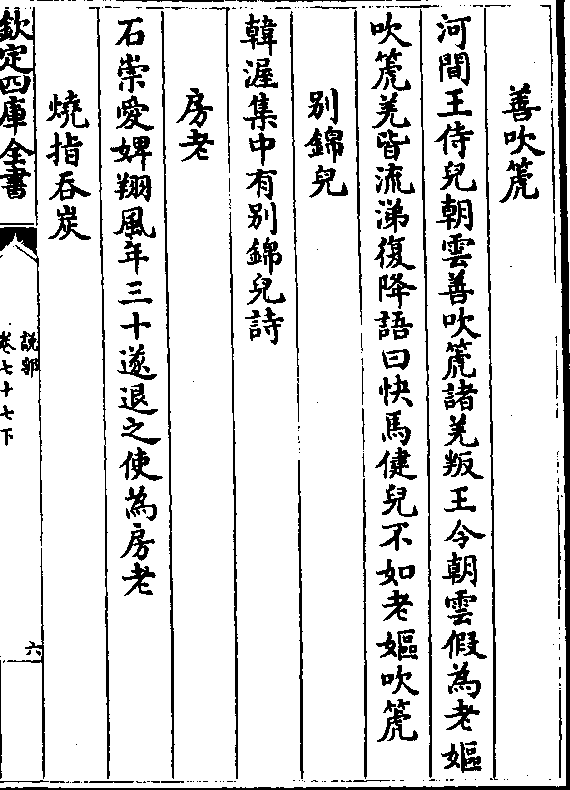 善吹箎
河間王侍兒朝雲善吹箎諸羌叛王令朝雲假為老嫗
吹箎羌皆流涕復降語曰快馬健兒不如老嫗吹箎
别錦兒
韓渥集中有别錦兒詩
房老
石崇愛婢翔風年三十遂退之使為房老
燒指吞炭
欽定四庫全書
說郛
卷七十七下
六